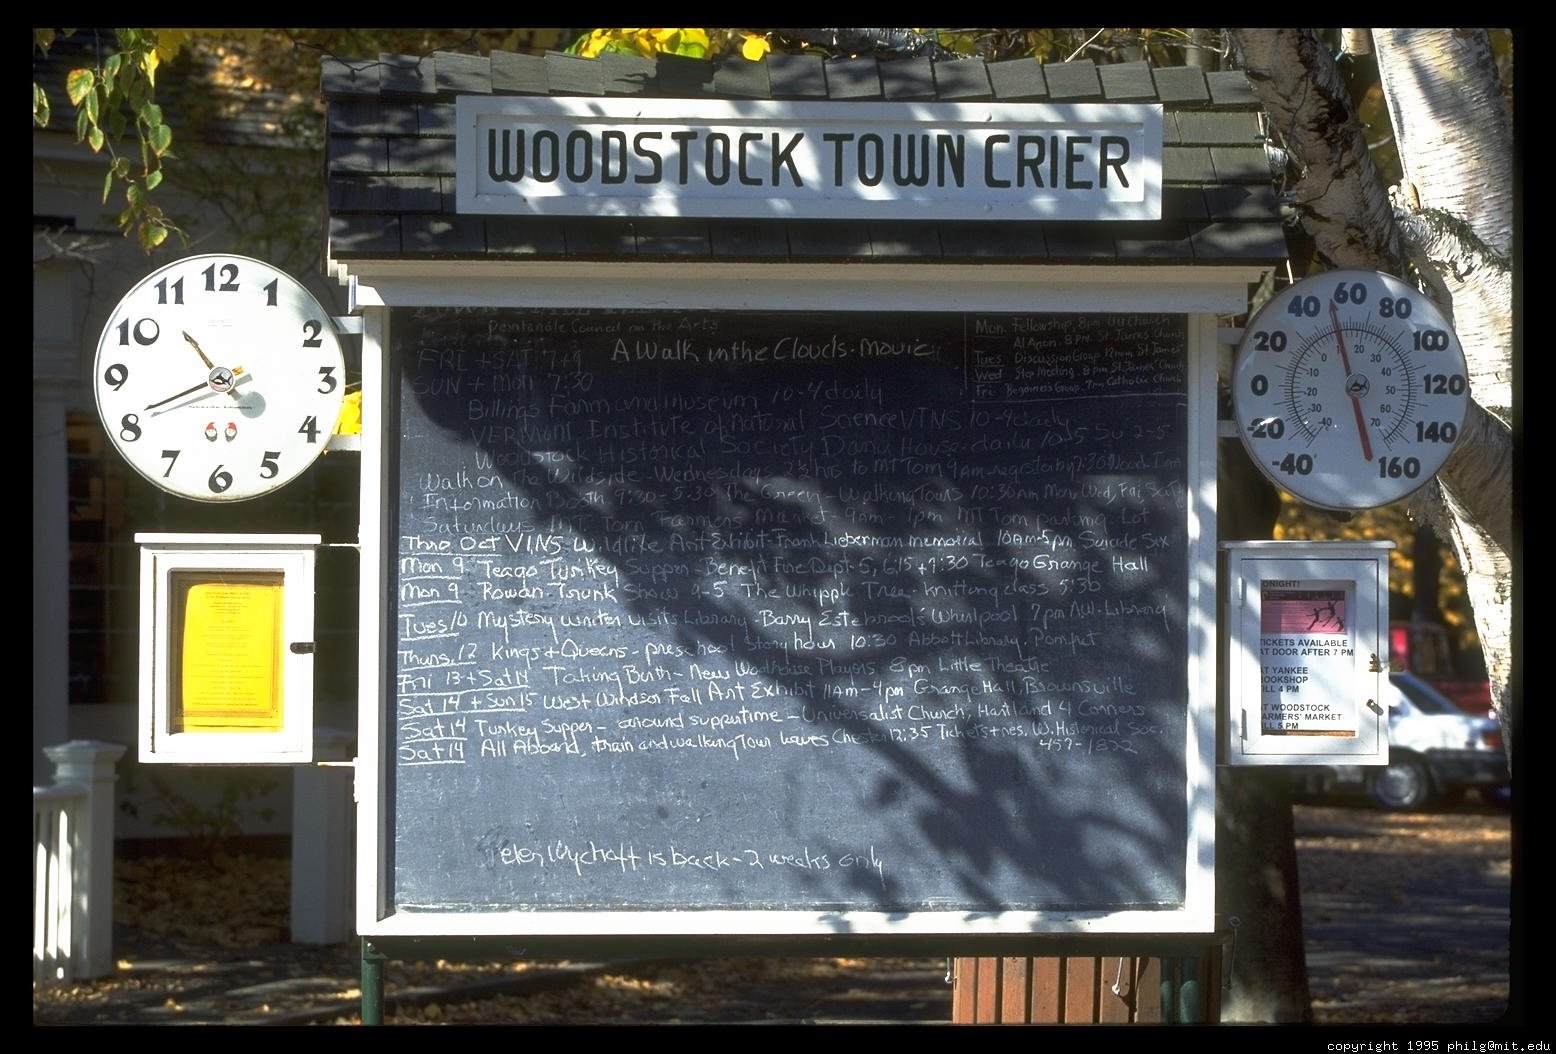 WOODSTOCK TOWN CRIER
12
1
2
3
4
5
6
7
8
9
10
11
Pentangle Council on the Arts
A Walk in the Clouds - Movie
FRI + SAT 7+9
SUN + Mon 7:30
Mon. Fellowship, 8pm UU Church
Al Anon. 8 P.M. St. James Church
Tues Discussion Group 12noon, St James'
Wed Step Meeting. 8 pm St. James' Church
Fri Beginners Group. 7pm Catholic Church
Billings Farm and Museum 10-4 daily
VERMONT Institute of Natural Science VINS 10-4 daily
Woodstock Historical Society Dana House - daily 10-5 Su 2-5
Walk on The Wildside Wednesdays 2½ hrs to MT Tom 9am - register by 7:30
Information Booth 9:30-5:30 The Green - Walking Tours 10:30 Am Mon, Wed, Fri, Sat
Saturdays MT Tom Farmers Market - 9am - 1pm MT Tom Parking Lot
Thro Oct VINS Wildlife Art Exhibit - Frank Lieberman memorial 10am-5pm
Mon 9 Teago Turkey Supper - Benefit Fire Dept - 5, 6:15 + 7:30 Teago Grange Hall
Mon 9 Rowan Trunk Show 9-5 The Whipple Tree - Knitting class 5:30
Tues 10 Mystery writer visits Library - Barry Estebrook's Whirlpool 7pm Library
Thurs. 12 Kings + Queens - preschool Story hour 10:30 Abbott Library, Pomfret
Fri 13 + Sat 14 Taking Birth - New Woolhouse Players 8 pm Little Theatre
Sat 14 + Sun 15 West Windsor Fall Art Exhibit 11Am - 4pm Grange Hall, Brownsville
Sat 14 Turkey Supper - around suppertime - Universalist Church, Hartland 4 Corners
Sat 14 All Aboard, train and walking Tour leaves Chester 12:35 Tickets + res. W. Historical Soc.
457-1822
is back - 2 weeks only
-40
-20
0
20
40
60
80
100
120
140
160
ONIGHT!
TICKETS AVAILABLE
AT DOOR AFTER 7 PM
AT YANKEE
BOOKSHOP
ILL 4 PM
AT WOODSTOCK
ARMERS' MARKET
ILL 5 PM
copyright 1995 philg@mit.edu